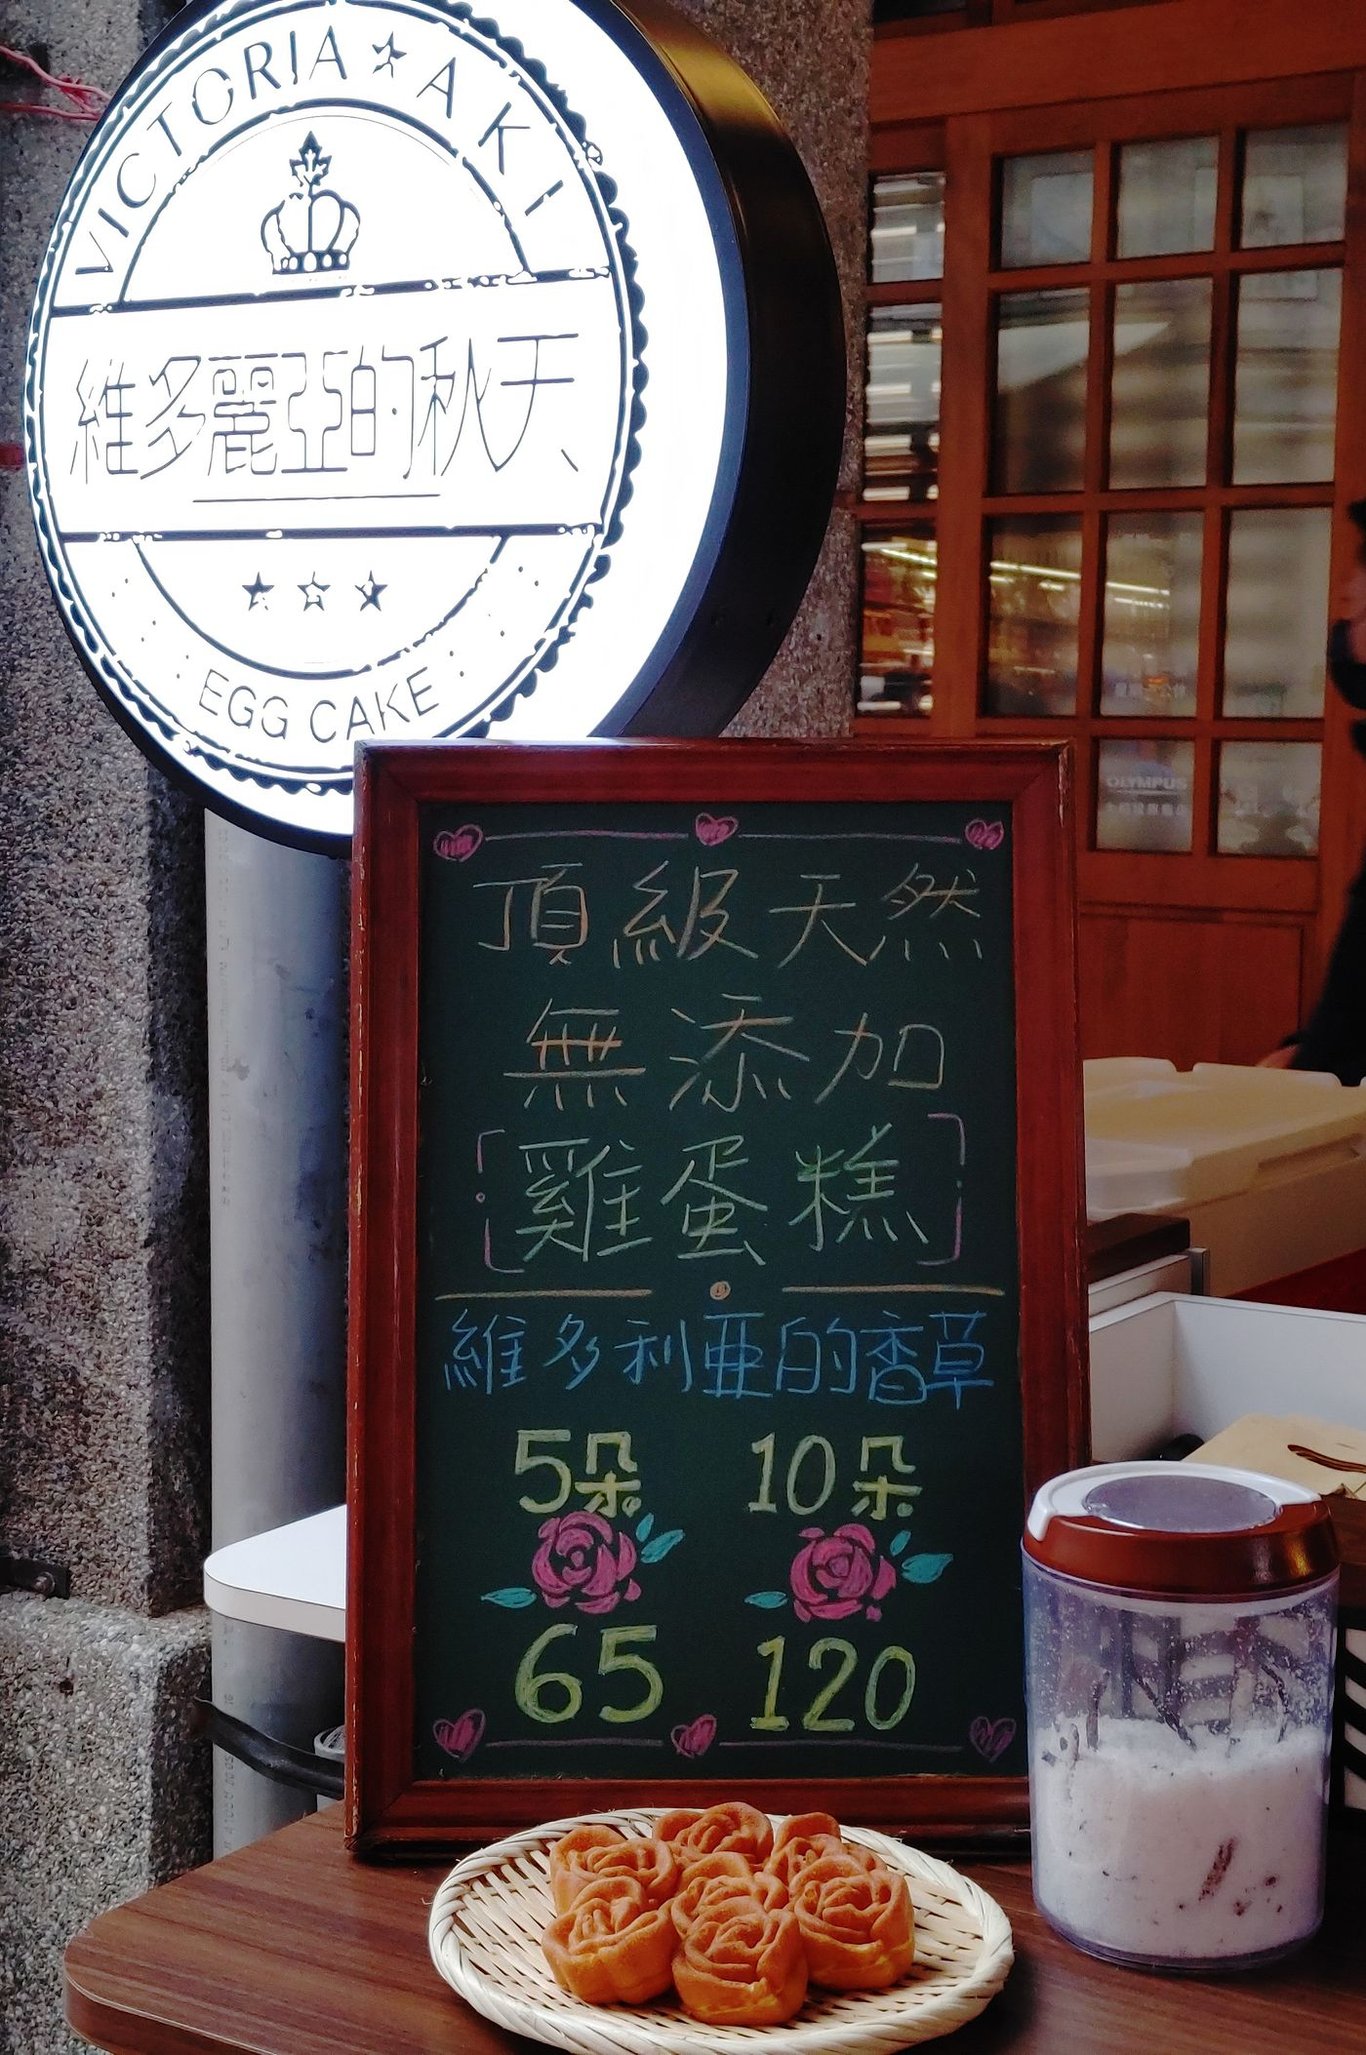 VICTORIA★AKI
維多麗亞的秋天
EGG CAKE
頂級天然
無添加
[雞蛋糕]
維多利亞的香草
5朵 10朵
65 120
OLYMPUS